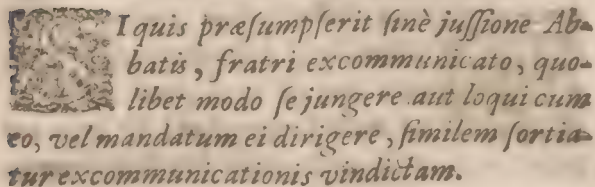 SI quis præſumpſerit ſinè juſſione Ab-
batis, fratri excommunicato, quo-
libet modo ſe jungere aut loqui cum
eo, vel mandatum ei dirigere, ſimilem ſortia-
tur excommunicationis vindictam.